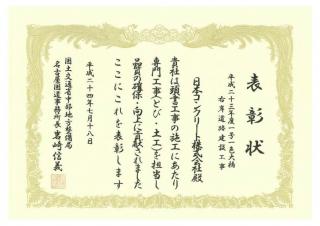 表彰状
平成二十三年度一号一色大橋
右岸道路建設工事
日本コンクリート株式会社殿
貴社は頭書工事の施工にあたり
専門工事(とび・土工)を担当し
品質の確保・向上に貢献されました
ここにこれを表彰します
平成二十四年七月十八日
国土交通省中部地方整備局
名古屋国道事務所長 岩﨑信義